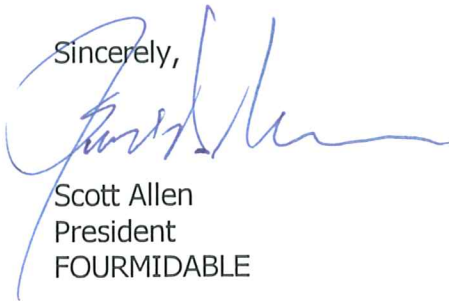 Sincerely,
Scott Allen
President
FOURMIDABLE